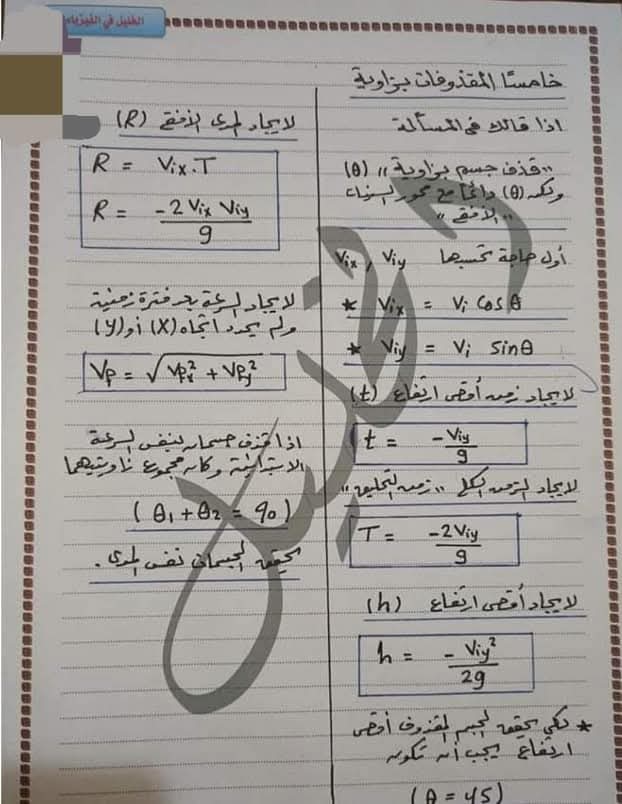 الخليل في الفيزياء
خامسًا المقذوفات بزاوية
اذا قالك في المسألة
"قذف جسم بزاوية" (θ)
وتكون (θ) دائمًا مع محور السينات
"الأفقي"
أول حاجة تحسبها Vix , Viy
* Vix = Vi Cos θ
* Viy = Vi sinθ
لايجاد زمن أقصى ارتفاع (t)
t = -Viy / g
لايجاد الزمن الكلي "زمن التحليق"
T = -2Viy / g
لايجاد أقصى ارتفاع (h)
h = - Viy² / 2g
* لكي يحقق الجسم المقذوف أقصى
ارتفاع يجب أن تكون
(θ = 45)
لايجاد المدى الأفقي (R)
R = Vix . T
R = -2 Vix Viy / g
لايجاد السرعة بعد فترة زمنية
ولم يحدد اتجاه (X) أو (y)
Vf = √ Vfx² + Vfy²
اذا قذف جسمان بنفس السرعة
الابتدائية وكان مجموع زاويتيهما
(θ1 + θ2 = 90)
يحقق الجسمان نفس المدى .
الخليل